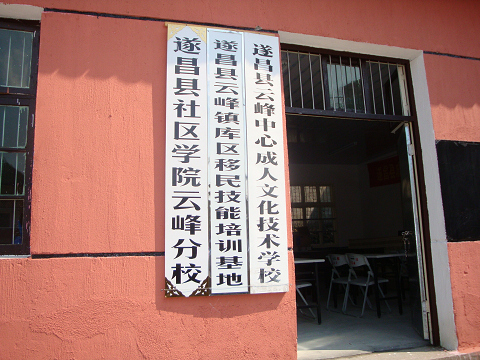 遂昌县社区学院云峰分校
遂昌县云峰镇库区移民技能培训基地
遂昌县云峰中心成人文化技术学校